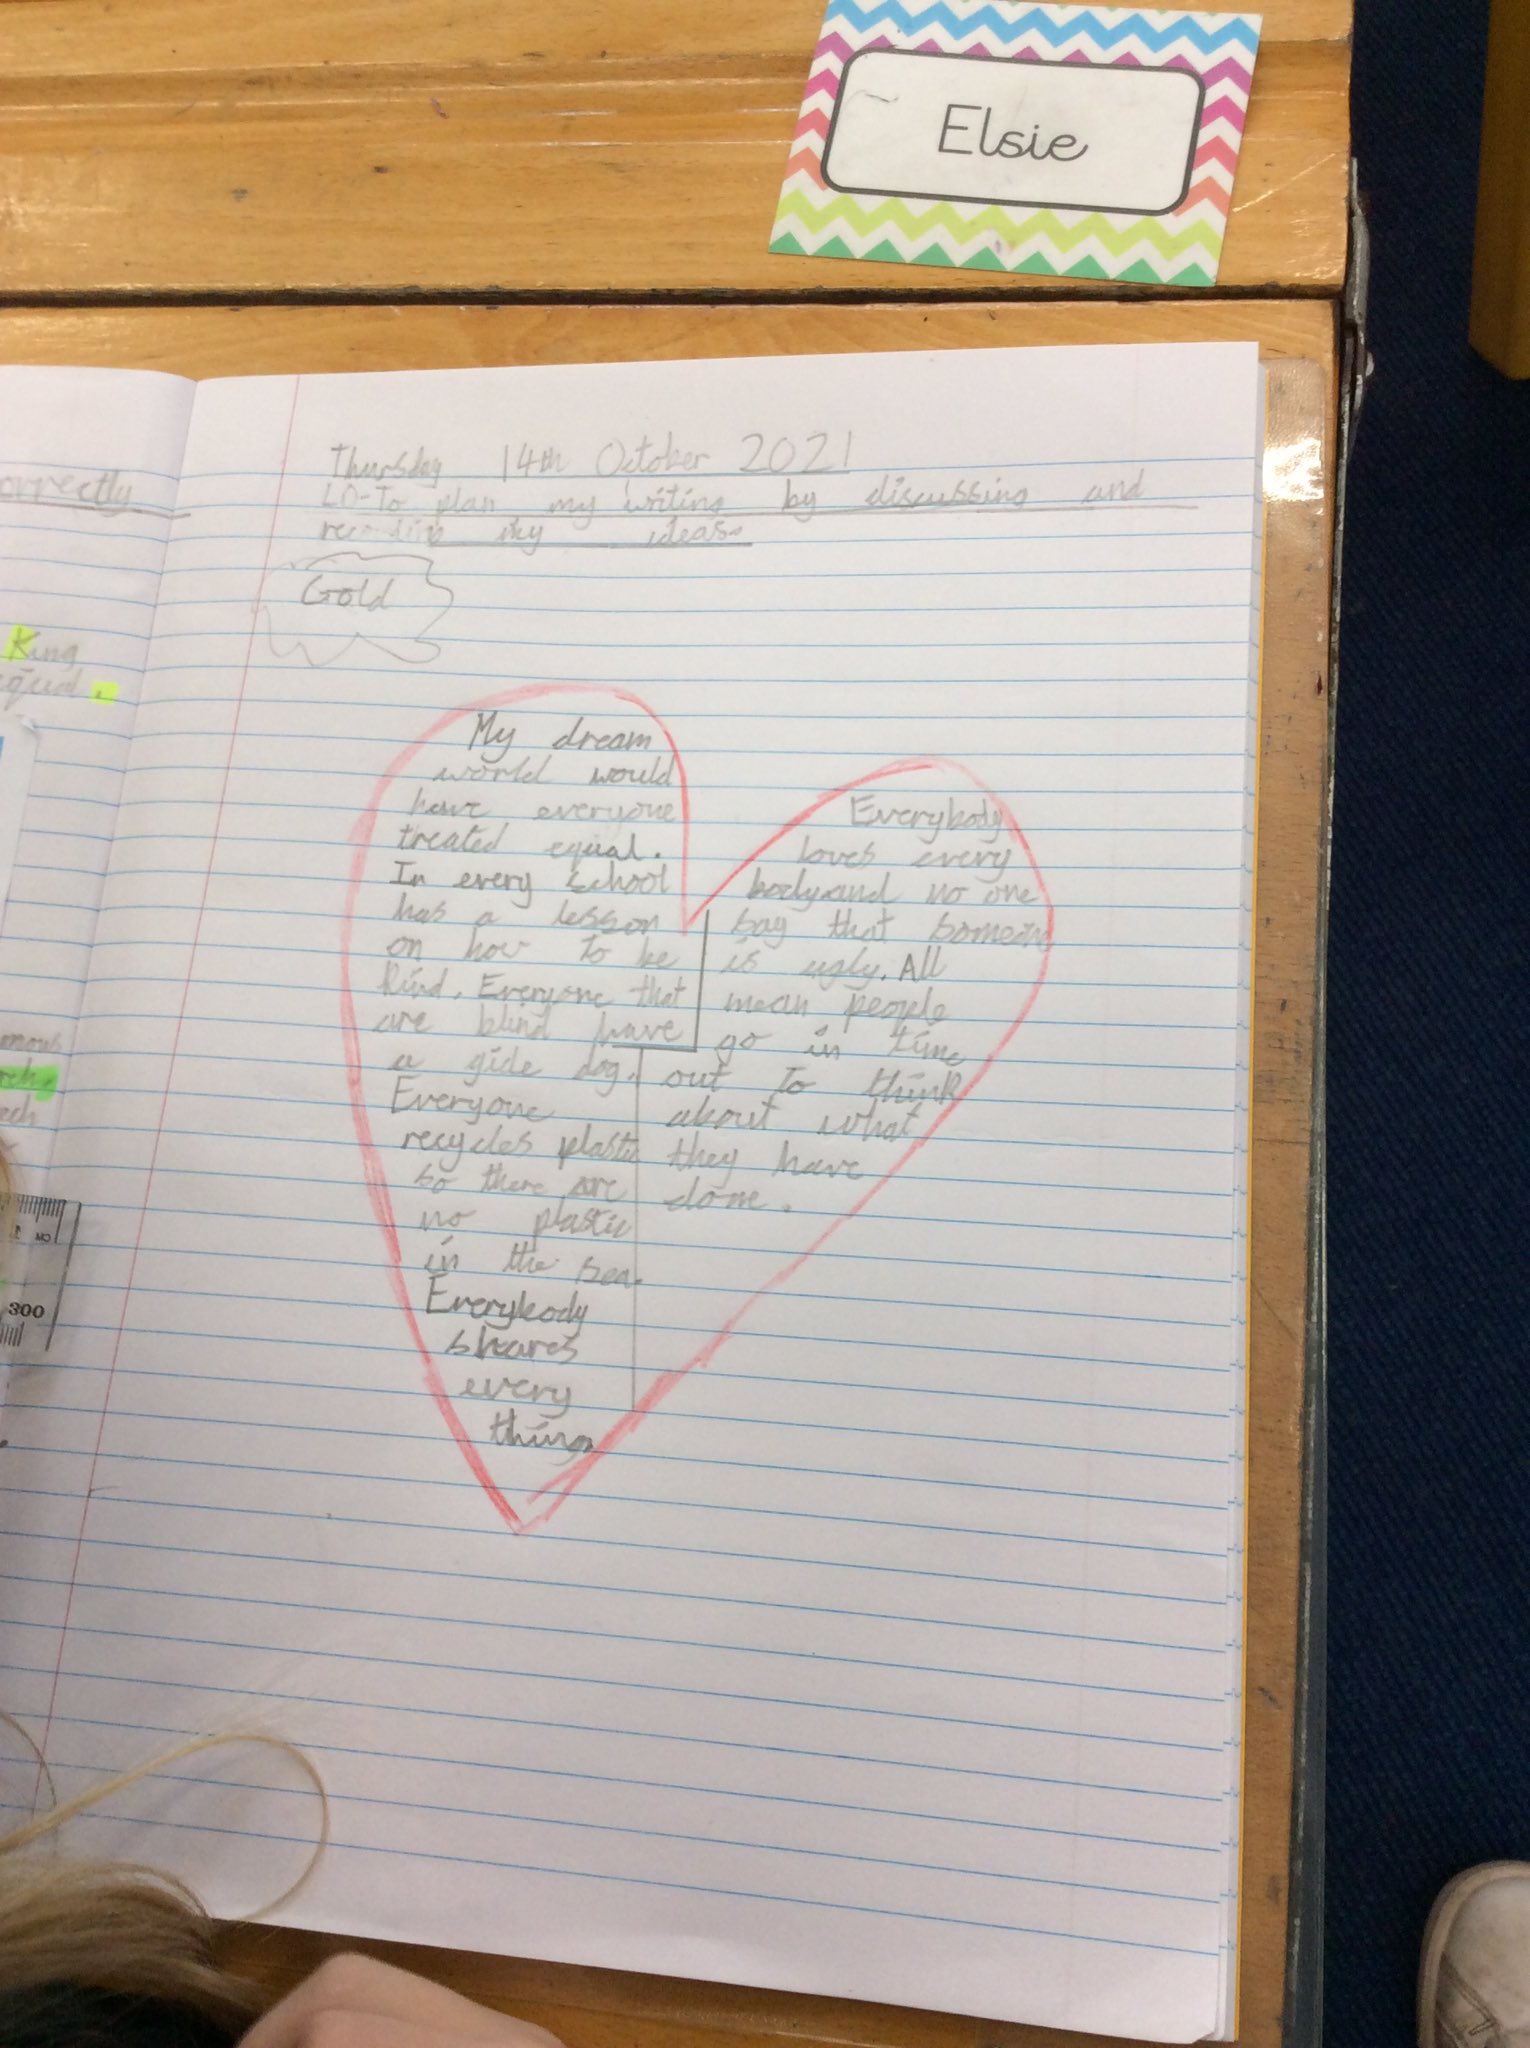 Elsie
orrectly
King
equal.
mous
rch.
eech
300
Thursday 14th October 2021
LO-To plan my writing by discussing and
recording my ideas.
Gold
My dream
world would
have everyone
treated equal.
In every school
has a lesson
on how to be
kind. Everyone that
are blind have
a gide dog.
Everyone
recycles plastic
so there are
no plastic
in the sea.
Everybody
sheares
every
thing
Everybody
loves every
body and no one
say that someone
is ugly. All
mean people
go in time
out to think
about what
they have
done.